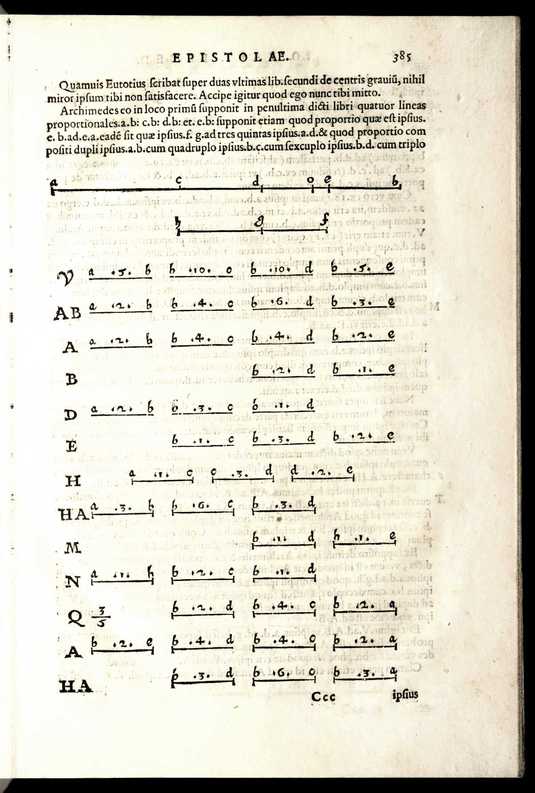 EPISTOLAE. 385
Quamuis Eutotius scribat super duas vltimas lib. secundi de centris grauiũ, nihil
miror ipsum tibi non satisfacere. Accipe igitur quod ego nunc tibi mitto.
Archimedes eo in loco primũ supponit in penultima dicti libri quatuor lineas
proportionales .a.b: c.b: d.b: et. e.b: supponit etiam quod proportio quæ est ipsius.
e. b. ad. e. a. eadẽ sit quæ ipsius. f. g. ad tres quintas ipsius. a. d. & quod proportio com
positi dupli ipsius. a. b. cum quadruplo ipsius. b. c. cum sexcuplo ipsius. b. d. cum triplo
a c d o e b
h g f
V a .5. b b .10. c b .10. d b .5. e
AB a .2. b b .4. c b .6. d b .3. e
A a .2. b b .4. c b .4. d b .2. e
B b .2. d b .1. e
D a .2. b b .3. c b .1. d
E b .1. c b .3. d b .2. e
H a .1. c c .3. d d .2. e
HA a .3. b b .6. c b .3. d
M b .1. d b .1. e
N a .1. b b .2. c b .1. d
Q 3/5 b .2. d b .4. c b .2. a
A b .2. e b .4. d b .4. c b .2. a
HA b .3. d b .6. c b .3. a
Ccc ipsius